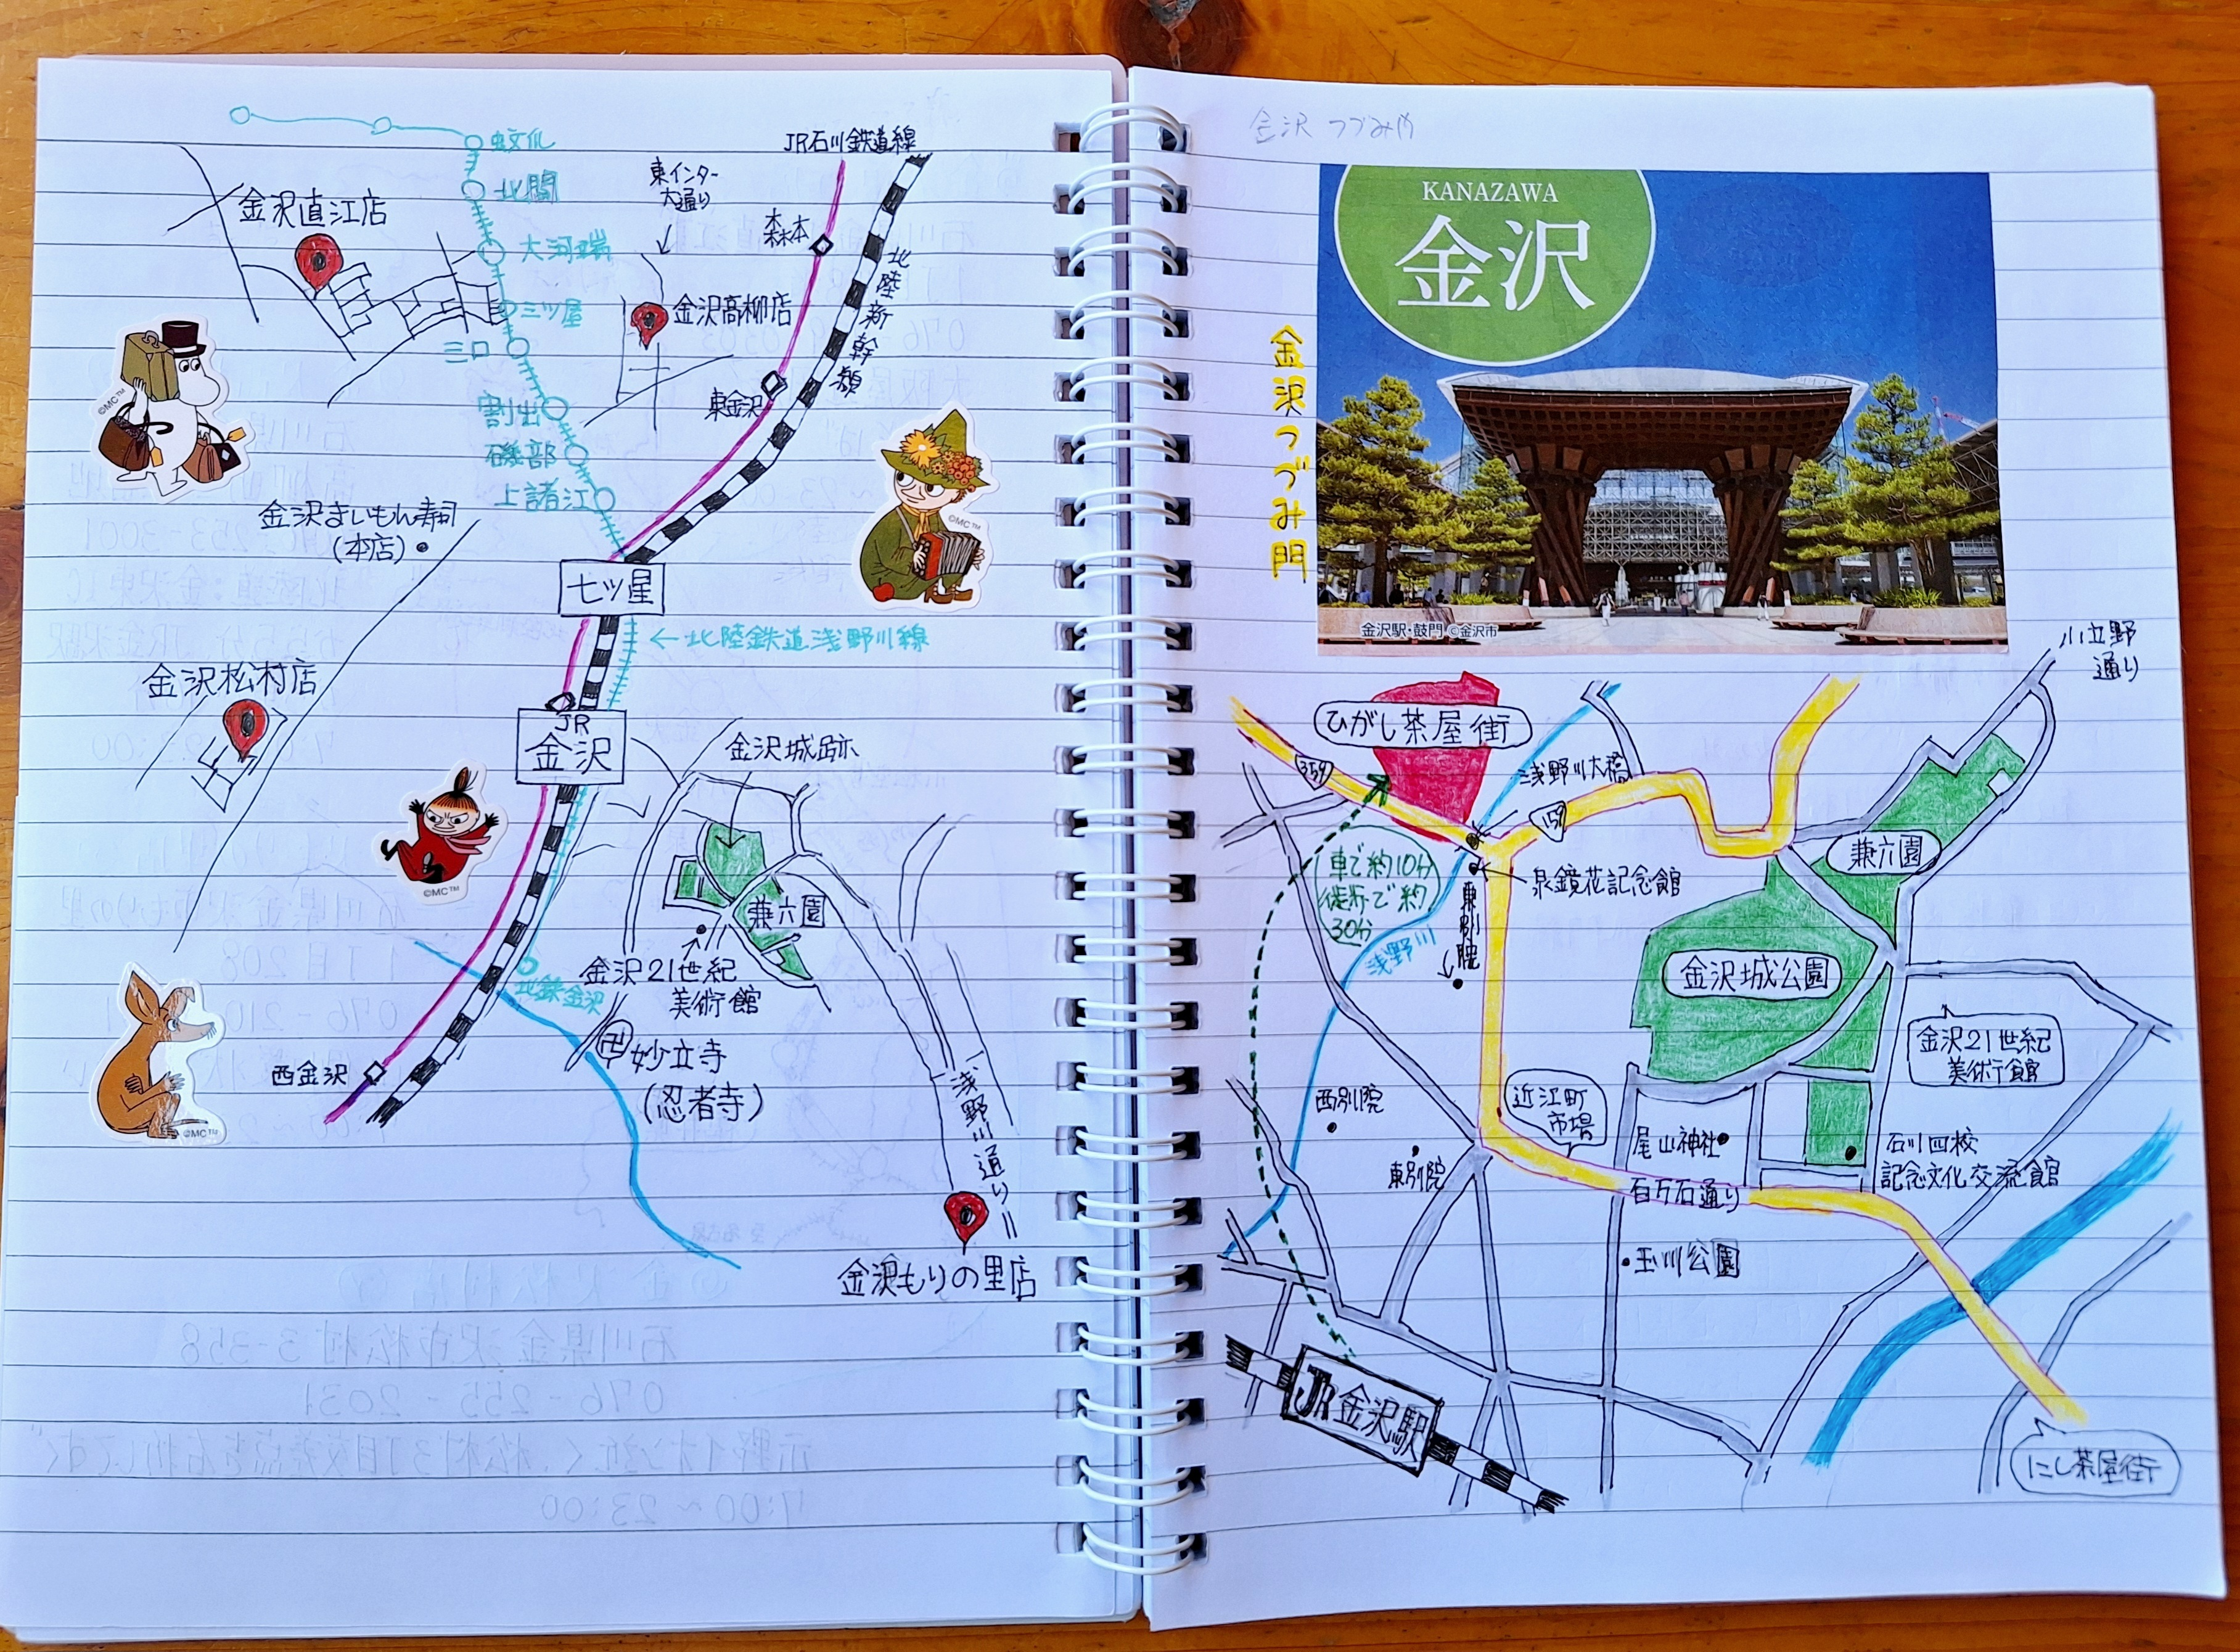 蚊爪
北間
大河端
三ツ屋
三口
割出
磯部
上諸江
金沢直江店
東インター
大通り
JR石川鉄道線
森本
北陸新幹線
金沢高柳店
東金沢
©MC™
©MC™
金沢まいもん寿司
(本店)
七ツ星
←北陸鉄道浅野川線
金沢松村店
JR
金沢
金沢城跡
©MC™
兼六園
金沢21世紀
美術館
地鉄金沢
卍妙立寺
(忍者寺)
西金沢
©MC™
浅野川通り
金沢もりの里店
金沢 つづみや
KANAZAWA
金沢
金沢つづみ門
金沢駅・鼓門 ©金沢市
小立野
通り
ひがし茶屋街
359
浅野川大橋
159
車で約10分
徒歩で約
30分
泉鏡花記念館
東別院
浅野川
兼六園
金沢城公園
金沢21世紀
美術館
西別院
東別院
近江町
市場
尾山神社
石川四校
記念文化交流館
百万石通り
玉川公園
JR金沢駅
にし茶屋街